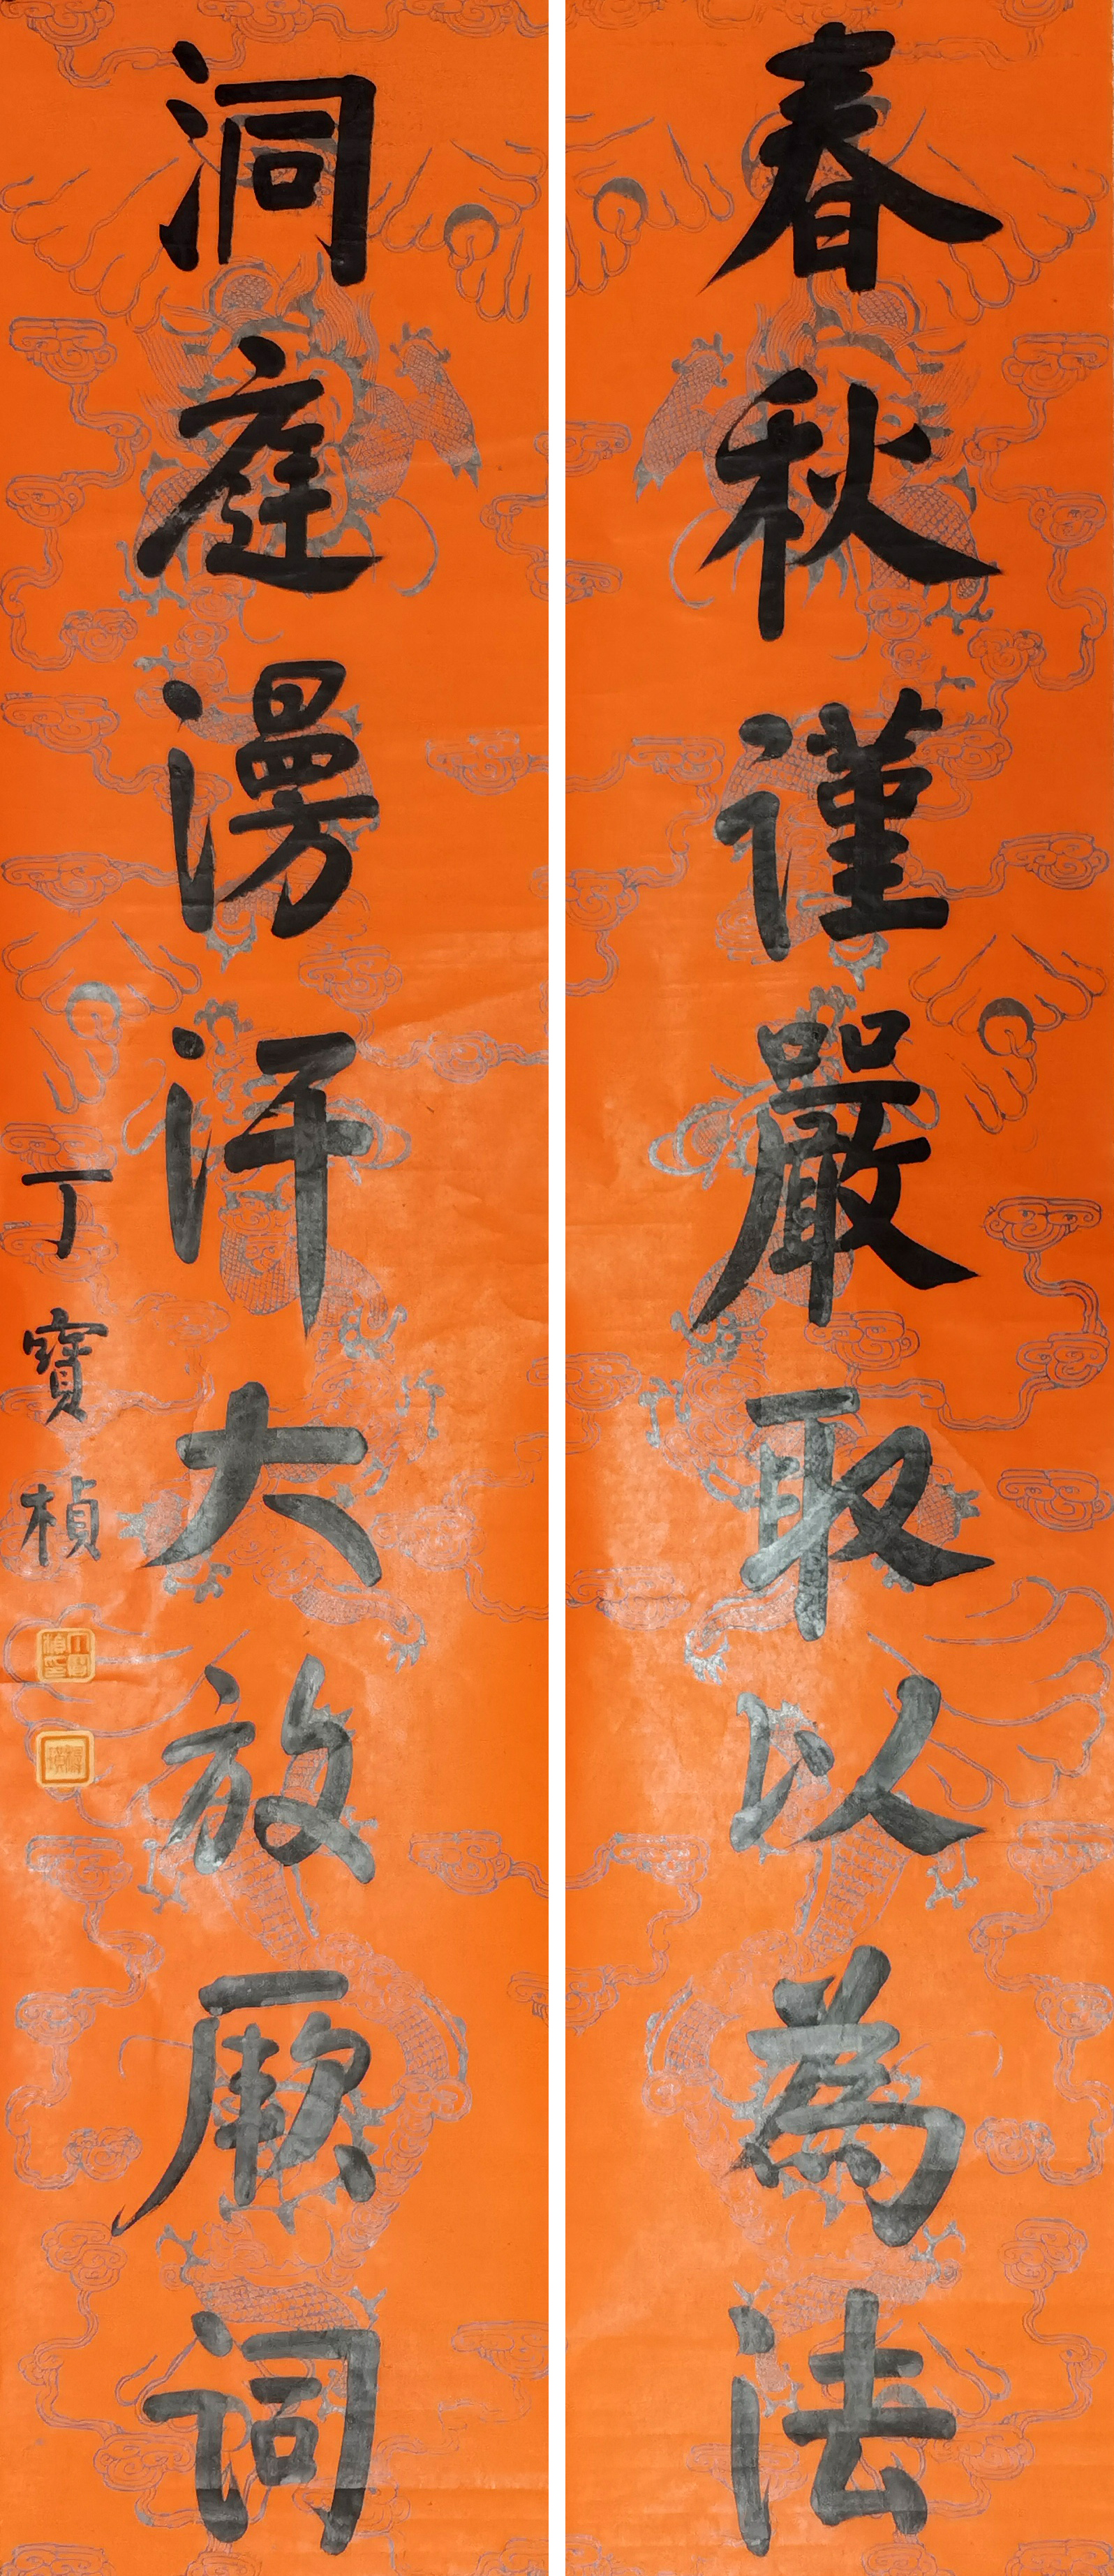 春秋謹嚴取以為法
洞庭漫汗大放厥詞
丁寶楨